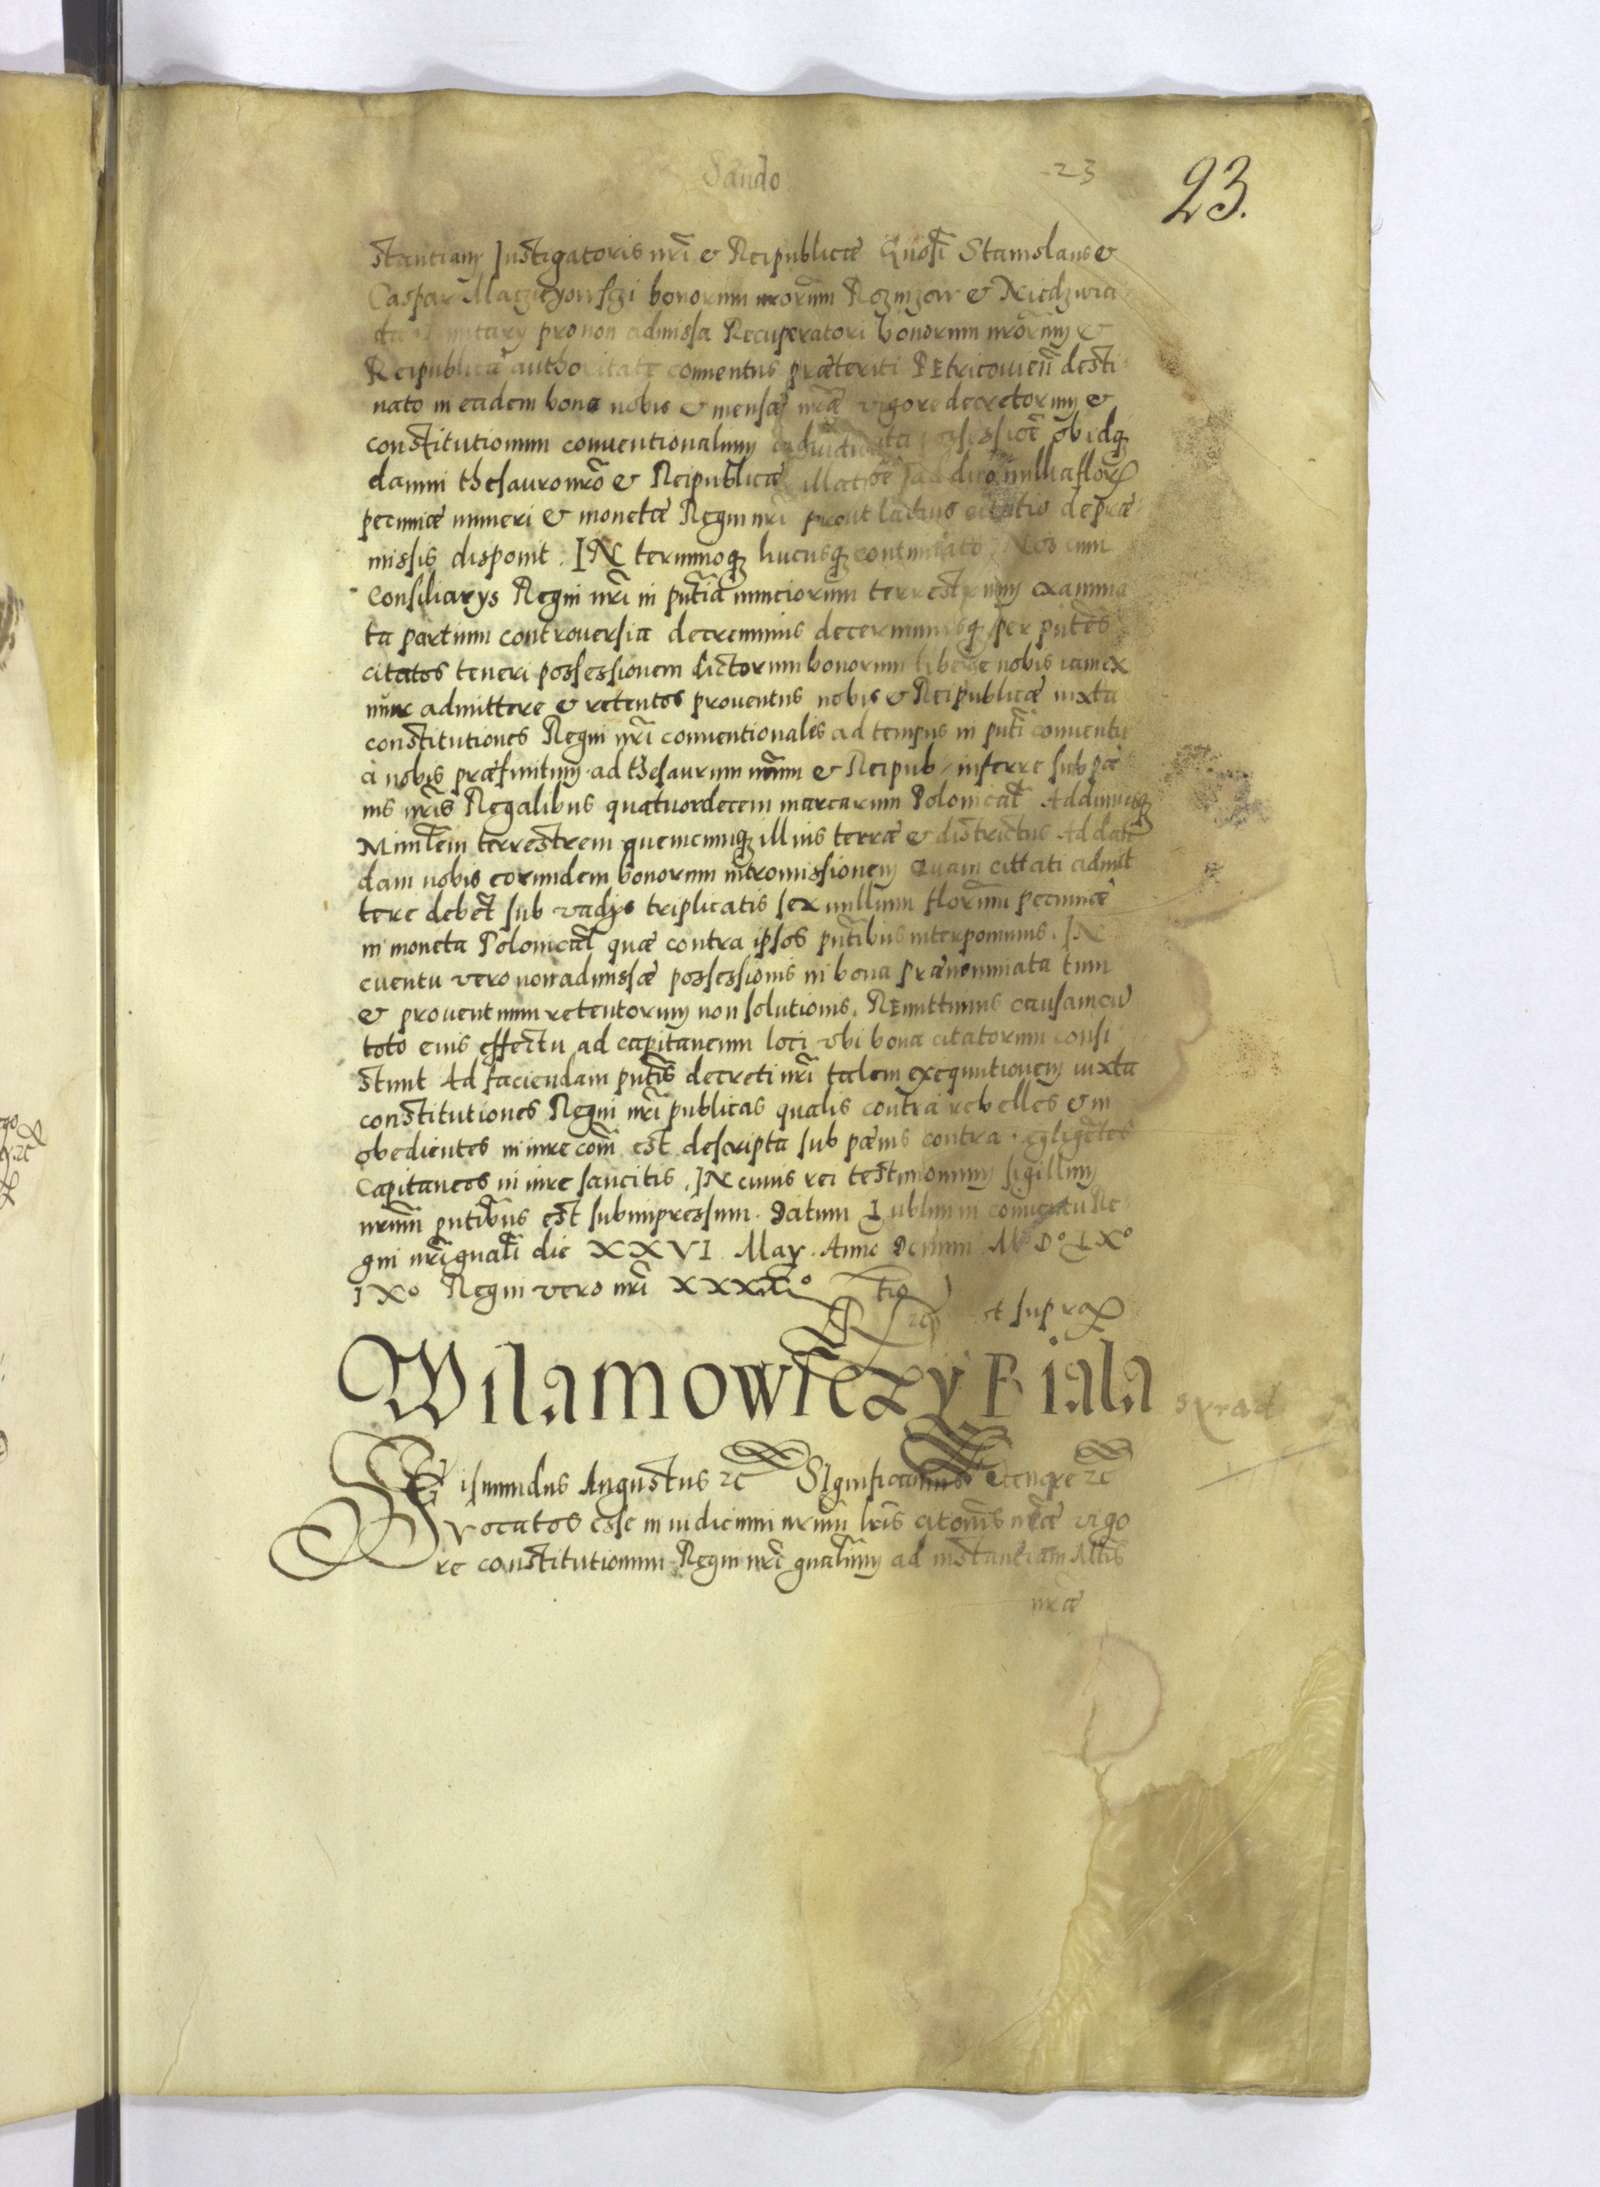 Sando
23
23.
stantiam Instigatoris nri & Reipublicæ Gnosi Stanislaus &
Caspar Macziejowsczi bonorum nrorum Rozniszow & Niedzwia
pro non admissa Recuperatori bonorum nrorum &
Reipublicæ authoritate conuentus præteriti PEtricouien desti
nato in eadem bona nobis & mensæ nræ vigore decretorum &
constitutionum conuentionalium possessione ob idq
damni thesauro nro & Reipublicæ illatione ad duo millia florꝝ
pecuniæ numeri & monetæ Regni nri prout latius citatio de præ
missis disponit. IN terminoq hucusq continuato Nos cum
Consiliarys Regni nri in pntia nunciorum terrestrium examina
ta partium controuersia decreuimus decernimusq per pntes
citatos teneri possessionem dictorum bonorum libere nobis iam ex
nunc admittere & retentos prouentus nobis & Reipublicæ iuxta
constitutiones Regni nri conuentionales ad tempus in pnti conuentu
a nobis præfinitum ad thesaurum nrum & Reipub. inferre sub pœ
nis nris Regalibus quatuordecem marcarum Polonical Addimusq
Minlem terrestrem quemcumq illius terræ & districtus Ad dan
dam nobis eorundem bonorum intromissionem Quam citati admit
tere debet sub vadys triplicatis sex millium florenu pecuniæ
in moneta Polonical quæ contra ipsos pntibus interponimus. IN
euentu vero non admissæ possessionis in bona prænominata tum
& prouentuum retentorum non solutionis. REmittimus causam cu
toto eius effectu ad capitaneum loci vbi bona citatorum consi
stunt Ad faciendam pntis decreti nri talem exequutionem iuxta
constitutiones Regni nri publicas qualis contra rebelles & in
obedientes in iure com est descripta sub pœnis contra negligetes
Capitaneos in iure sancitis. IN cuius rei testimonium sigillum
nrum pntibus est subimpressum. Datum Lublin in conuentu Re
gni nri gnali die XXVI May. Anno Domini Mo Do LXo
IXo Regni vero nri XXXXo
Rlatio ut supra
Wilamowsczy Biala
syrad
SGismundus Augustus ꝛc Significamus tenore ꝛc
vocatos esse in iudicium nrum lris citonis nræ vigo
re constitutionum Regni nri gnalium ad instantiam Mtis
nræ